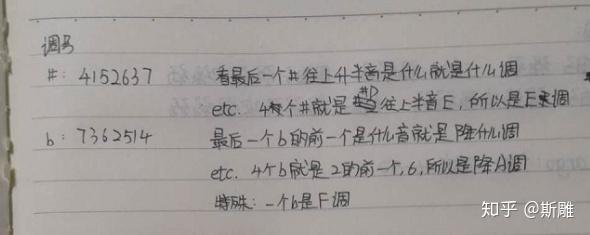 调号
#: 4152637 看最后一个#往上升半音是什么就是什么调
etc. 4个#就是#D往上半音E,所以是E大调
b: 7362514 最后一个b的前一个是什么音就是降什么调
etc. 4个b就是2的前一个,6,所以是降A调
特殊: 一个b是F调
知乎 @斯雕